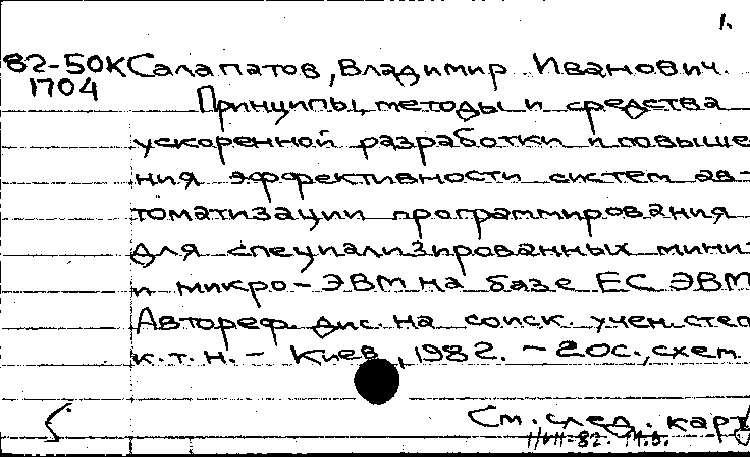 1.
82-50К Салапатов, Владимир Иванович.
1704
Принципы, методы и средства
ускоренной разработки и повыше
ния эффективности систем ав-
томатизации программирования
для специализированных мини-
и микро-ЭВМ на базе ЕС ЭВМ
Автореф. дис. на соиск. учен. степ
к.т.н. - Киев, 1982. - 20с., схем.
См. след. карт